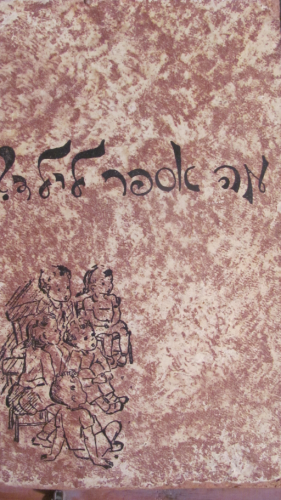 מה אספר לילדי?